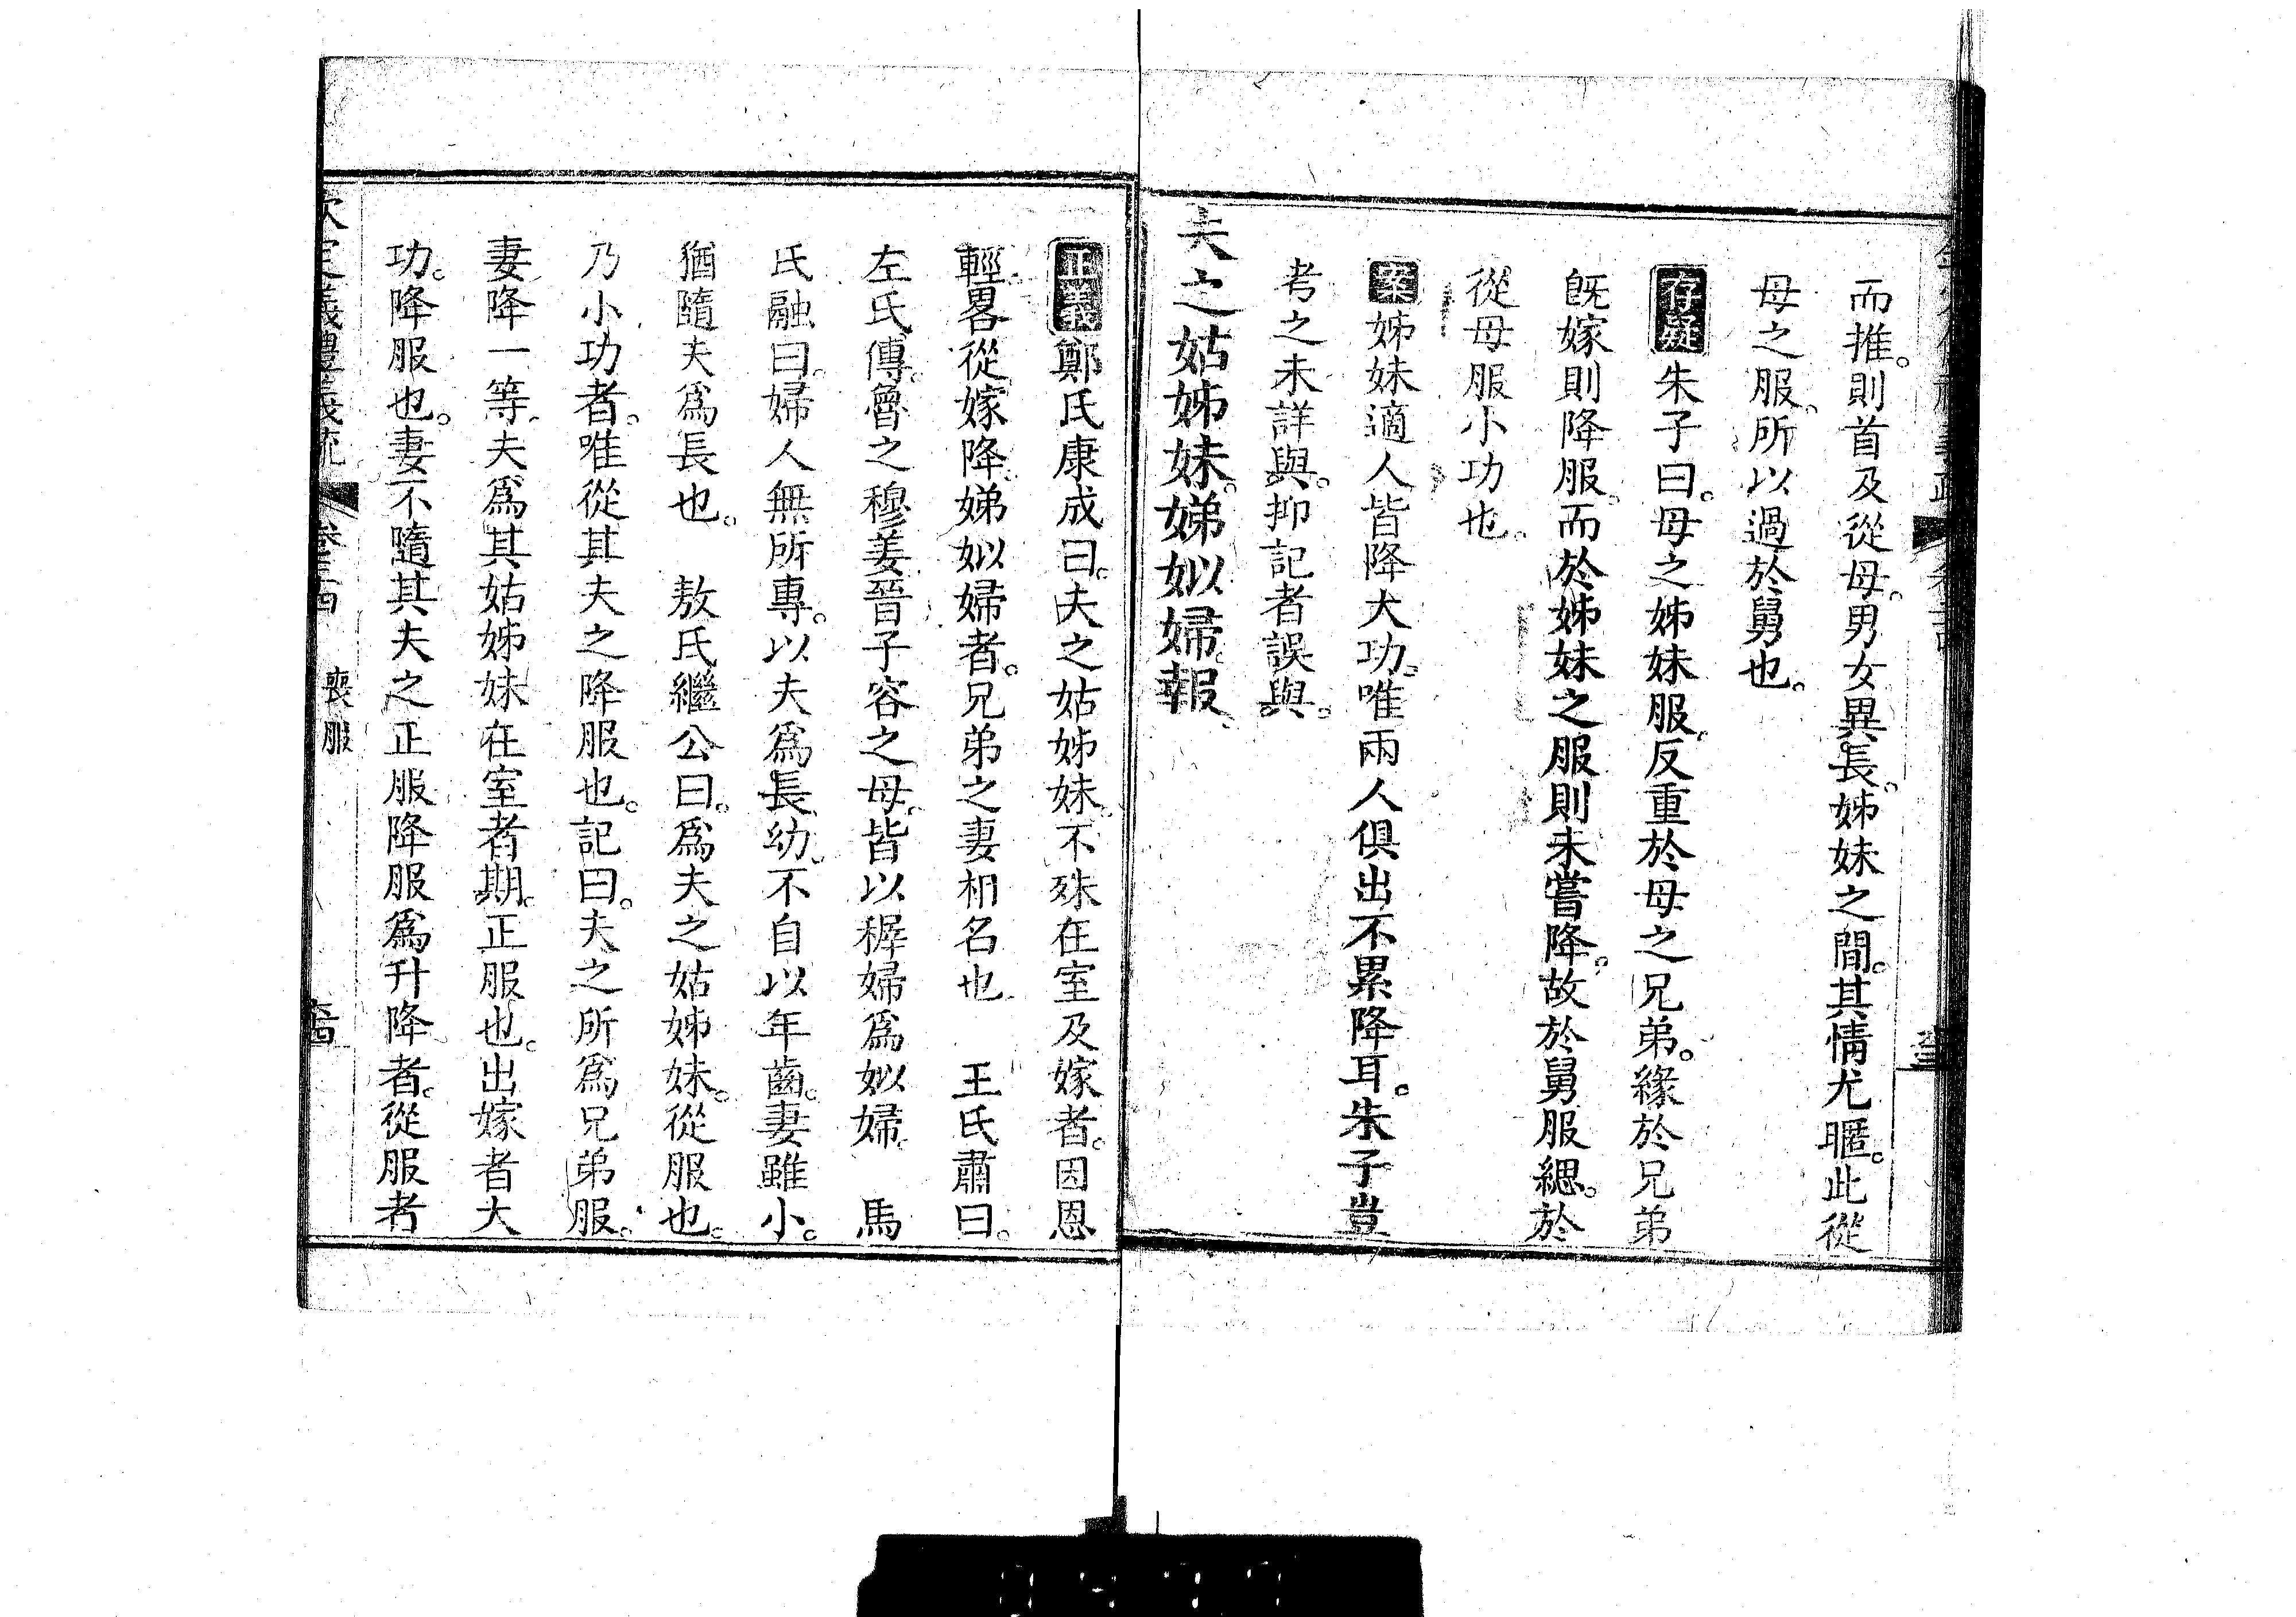 而推。則首及從母。男女異長。姊妹之間。其情尤暱。此從
母之服。所以過於舅也。
存疑朱子曰。母之姊妹服。反重於母之兄弟。緣於兄弟
旣嫁則降服。而於姊妹之服則未嘗降。故於舅服緦。於
從母服小功也。
案姊妹適人皆降大功。唯兩人俱出不累降耳。朱子豈
考之未詳與。抑記者誤與。
夫之姑姊妹。娣姒婦。報。
正義鄭氏康成曰。夫之姑姊妹。不殊在室及嫁者。因恩
輕。畧從嫁降。娣姒婦者。兄弟之妻相名也 王氏肅曰。
左氏傳。魯之穆姜晉子容之母。皆以穉婦爲姒婦。 馬
氏融曰。婦人無所專。以夫爲長幼。不自以年齒。妻雖小。
猶隨夫爲長也。 敖氏繼公曰。爲夫之姑姊妹。從服也。
乃小功者。唯從其夫之降服也。記曰。夫之所爲兄弟服。
妻降一等。夫爲其姑姊妹在室者期。正服也。出嫁者大
功。降服也。妻不隨其夫之正服降服爲升降者。從服者
欽定義禮義疏 卷二十四 喪服